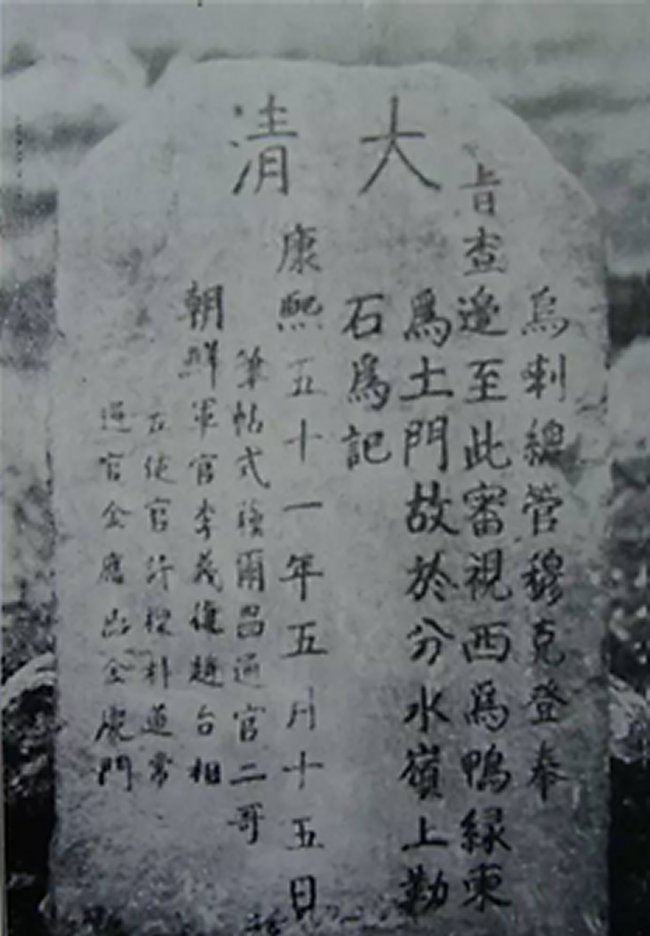 大清
烏喇總管穆克登奉
旨查邊至此審視西爲鴨綠東
爲土門故於分水嶺上勒
石爲記
康熙五十一年五月十五日
筆帖式蘇爾昌通官二哥
朝鮮軍官李義復趙台相
差使官許樑朴道常
通官金應㴒金慶門